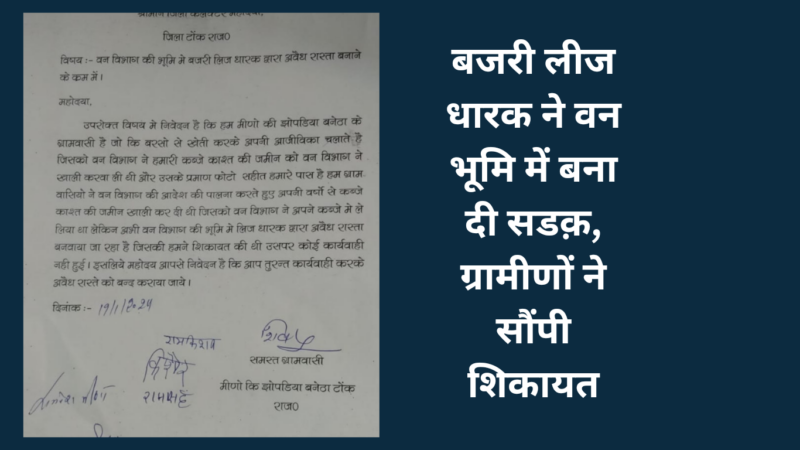 ग्रामीण जिला कलेक्टर महोदया,
जिला टोंक राज0
विषय :- वन विभाग की भूमि मे बजरी लिज धारक द्वारा अवैध रास्ता बनाने
के क्रम में ।
महोदया,
उपरोक्त विषय मे निवेदन है कि हम मीणो की झोपडिया बनेठा के
ग्रामवासी है जो कि बरसो से खेती करके अपनी आजीविका चलाते है
जिसको वन विभाग ने हमारी कब्जे काश्त की जमीन को वन विभाग ने
खाली करवा ली थी और उसके प्रमाण फोटो सहीत हमारे पास है हम ग्राम
वासियो ने वन विभाग की आदेश की पालना करते हुए अपनी वर्षो से कब्जे
काश्त की जमीन खाली कर दी थी जिसको वन विभाग ने अपने कब्जे मे ले
लिया था लेकिन अभी वन विभाग की भूमि मे लिज धारक द्वारा अवैध रास्ता
बनवाया जा रहा है जिसकी हमने शिकायत की थी उसपर कोई कार्यवाही
नही हुई । इसलिये महोदय आपसे निवेदन है कि आप तुरन्त कार्यवाही करके
अवैध रास्ते को बन्द कराया जावे ।
दिनांक :- 19/1/2024
रामकिशन
समस्त ग्रामवासी
मीणो कि झोपडिया बनेठा टोंक
राज0
बजरी लीज
धारक ने वन
भूमि में बना
दी सडक़,
ग्रामीणों ने
सौंपी
शिकायत